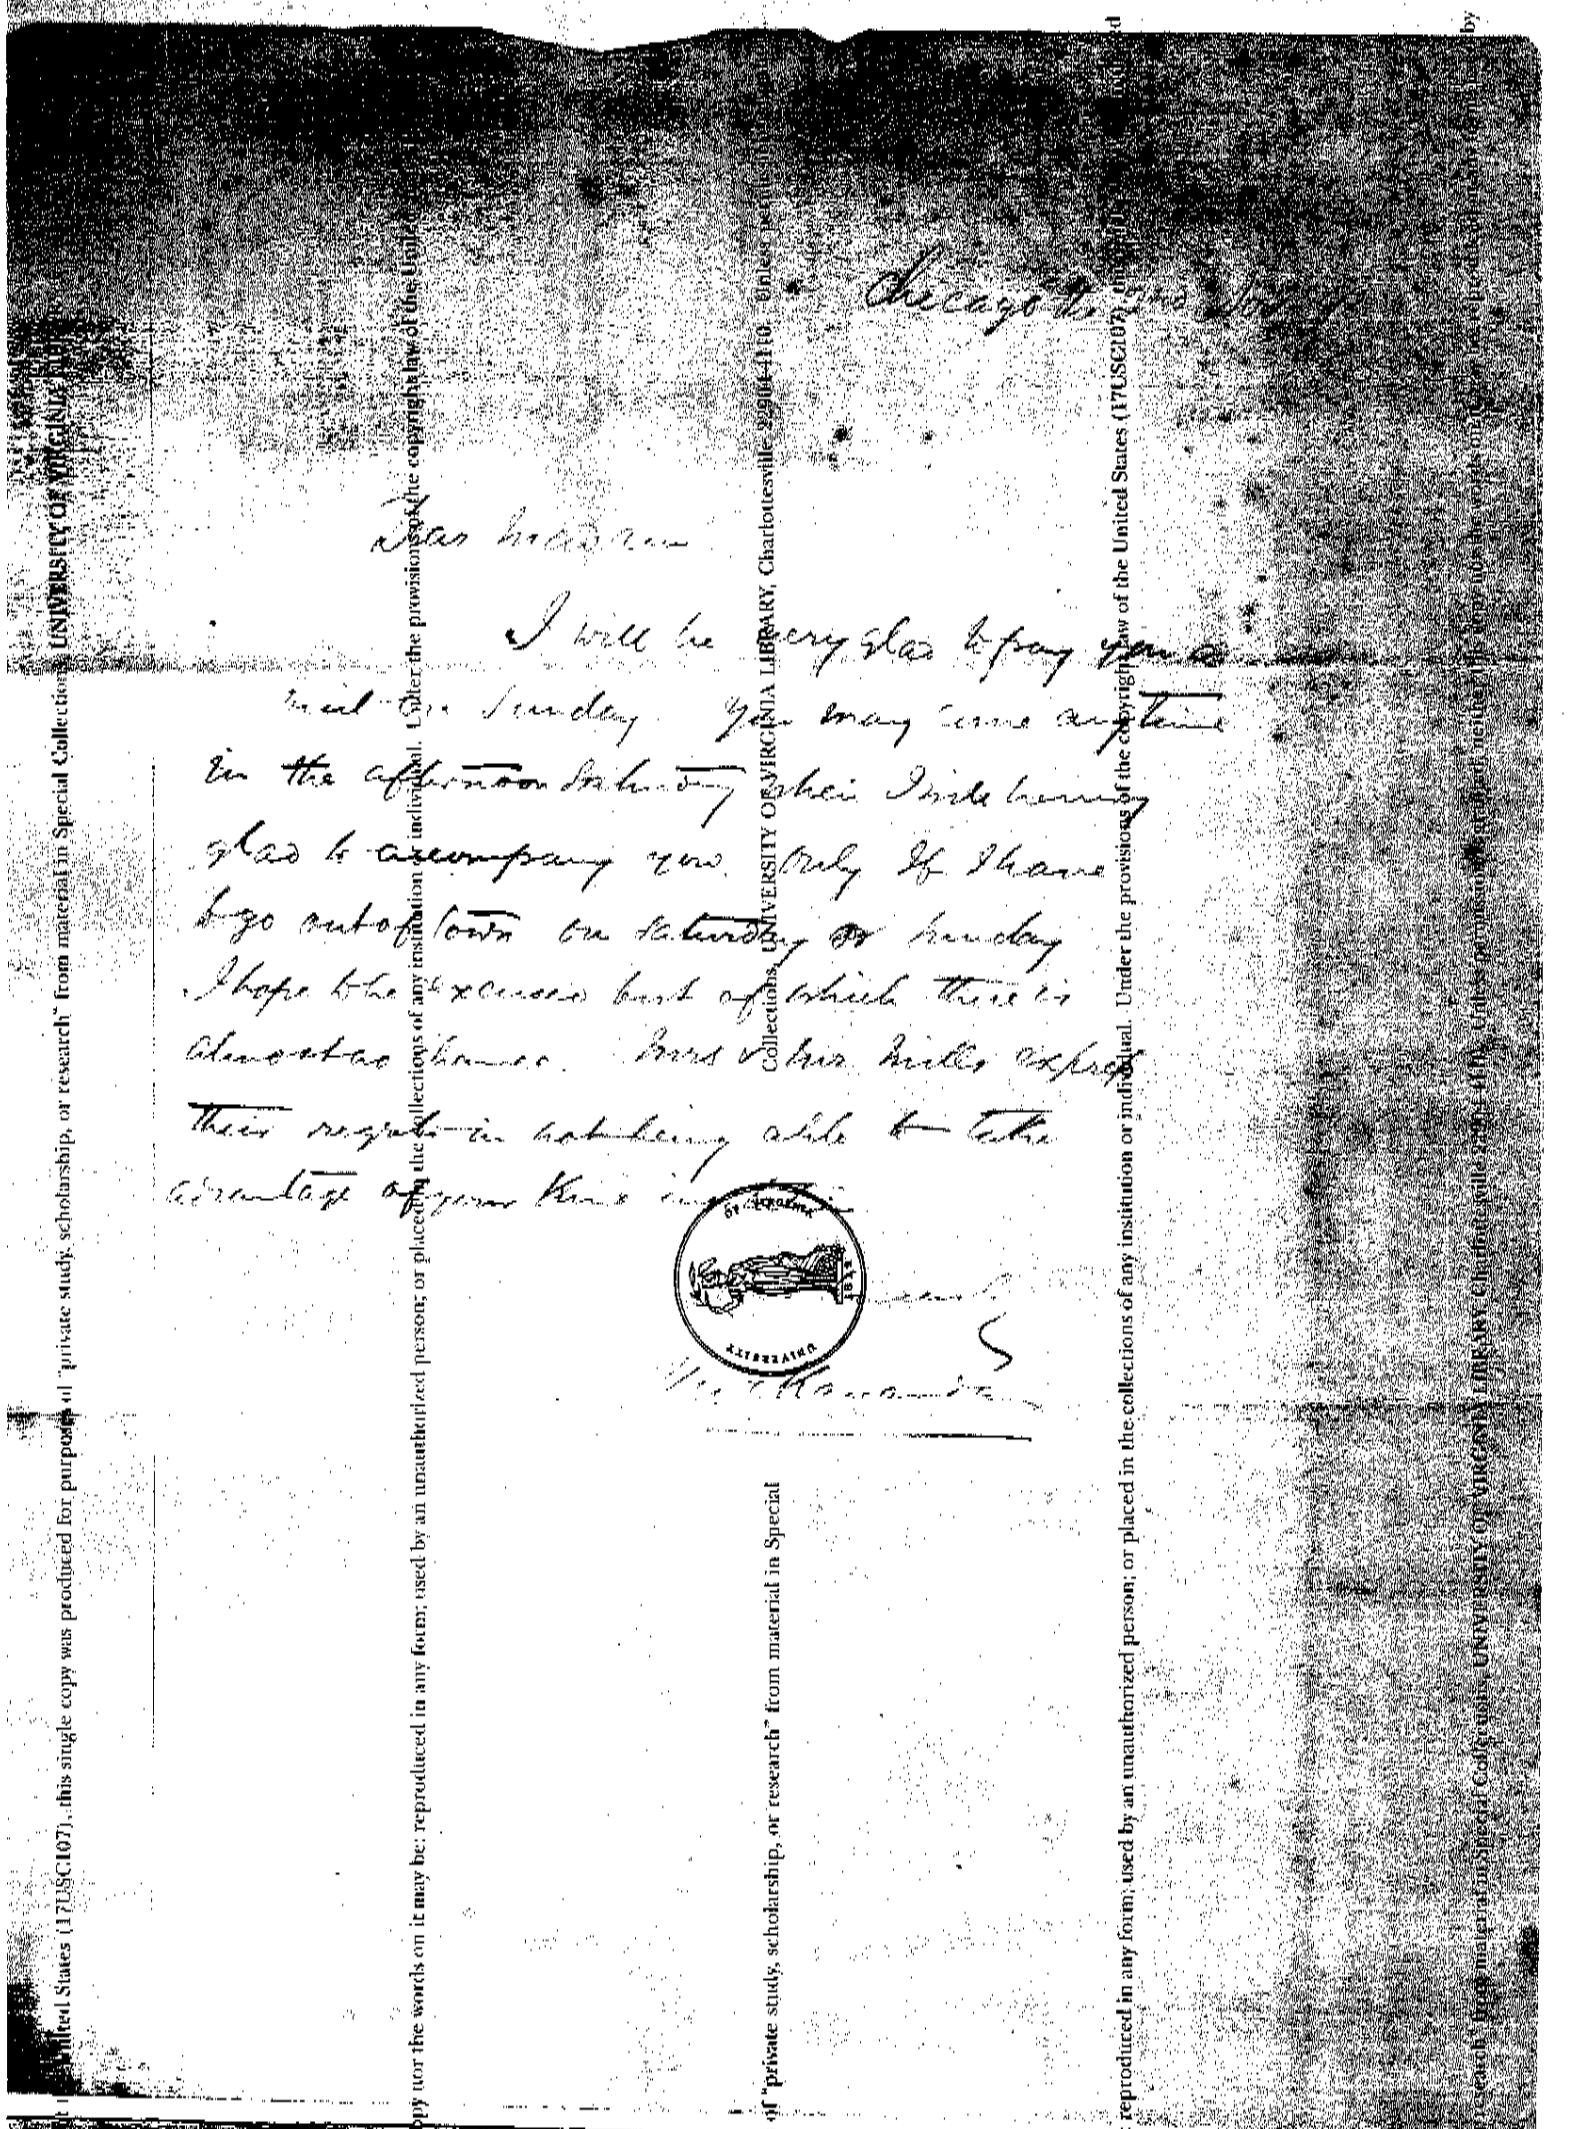 Chicago the 2nd Nov
Dear Madam
I will be very glad to pay you a
visit on Sunday. You may come anytime
in the afternoon Saturday when I will be very
glad to accompany you. Only If I have
to go out of town on Saturday or Sunday
I hope to be excused but of which there is
almost no chance. Mrs & Mr. Mills express
their regrets in not being able to take
advantage of your kind invitation
Vivekananda
UNIVERSITY
OF VIRGINIA
1819
United States (17USC107), this single copy was produced for purposes of "private study, scholarship, or research" from material in Special Collections, UNIVERSITY OF VIRGINIA LIBRARY
copy nor the words on it may be: reproduced in any form; used by an unauthorized person; or placed in the collections of any institution or individual. Under the provisions of the copyright law of the United
of "private study, scholarship, or research" from material in Special
Collections, UNIVERSITY OF VIRGINIA LIBRARY, Charlottesville 22904-4110. Unless permission
reproduced in any form; used by an unauthorized person; or placed in the collections of any institution or individual. Under the provisions of the copyright law of the United States (17USC107)
research" from material in Special Collections, UNIVERSITY OF VIRGINIA LIBRARY, Charlottesville 22904-4110. Unless permission is granted, neither this copy nor the words on it may be: reproduced in any form; by